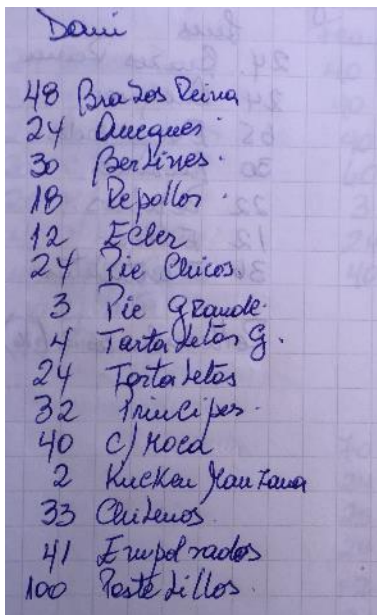 Dani
48 Brazos Reina
24 Queques.
30 Berlines.
18 Repollos.
12 Ecler
24 Pie Chicos.
3 Pie grande.
4 Tartaletas G.
24 Tartaletas
32 Principes.
40 C/ Moca
2 Kucken Manzana
33 Chilenos.
41 Empolvados
100 Pastelillos.